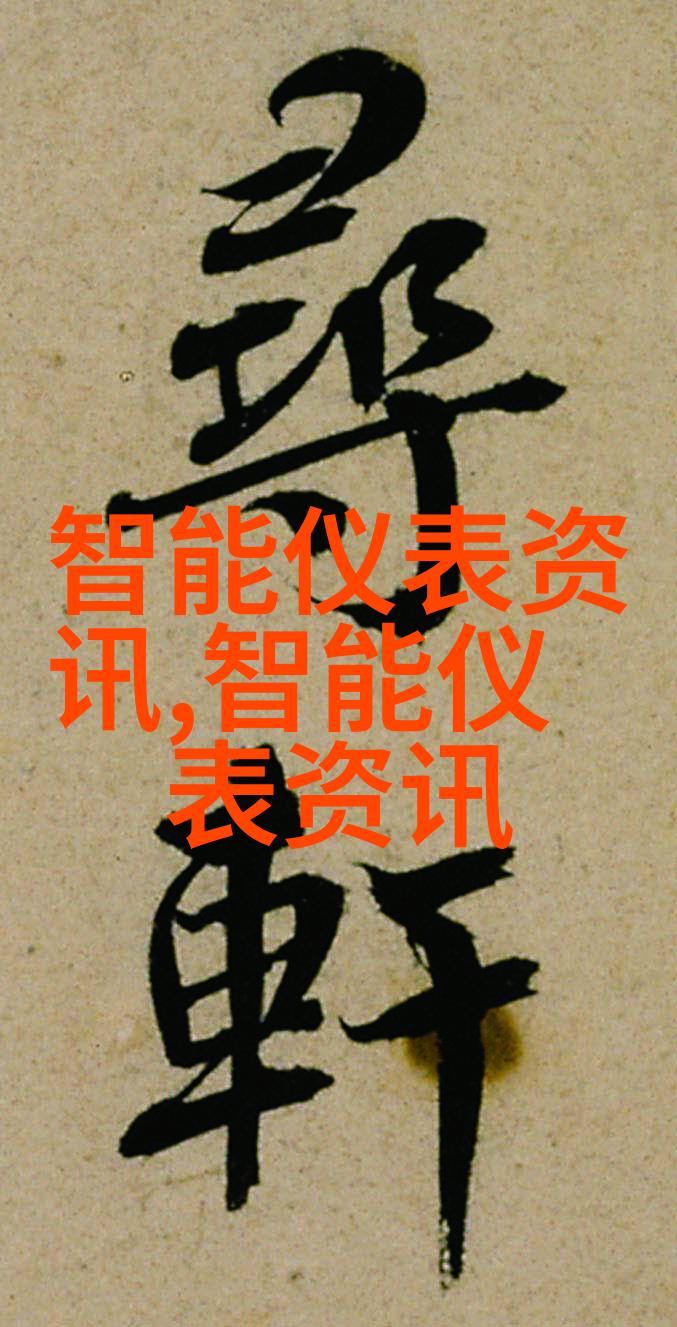 尋
軒
智能仪表资
讯,智能仪
表资讯